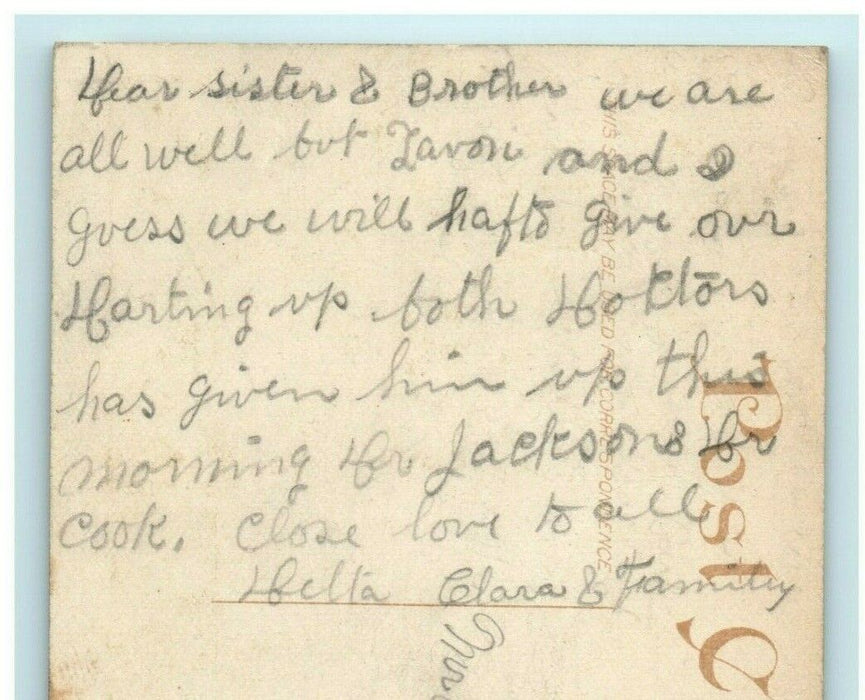 Dear sister & Brother we are
all well but Lavon and I
guess we will hafto give our
Darting up both Docktors
has given him up this
morning Dr Jackson & Dr
cook. Close love to all
Delta Clara & Familey
THIS SPACE MAY BE USED FOR CORRESPONDENCE
Post